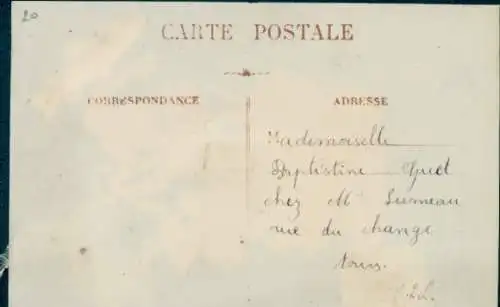 20
CARTE POSTALE
CORRESPONDANCE
ADRESSE
Mademoiselle
Baptistine
chez Mr Lumeau
rue du change
Tours.